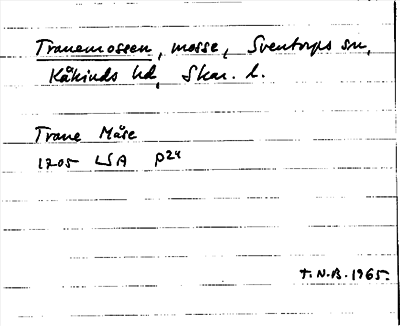 Tranemossen, mosse, Sventorps sn,
Kåkinds hd, Skar. l.
Trane Måse
1705 LSA P24
T.N.B. 1965.